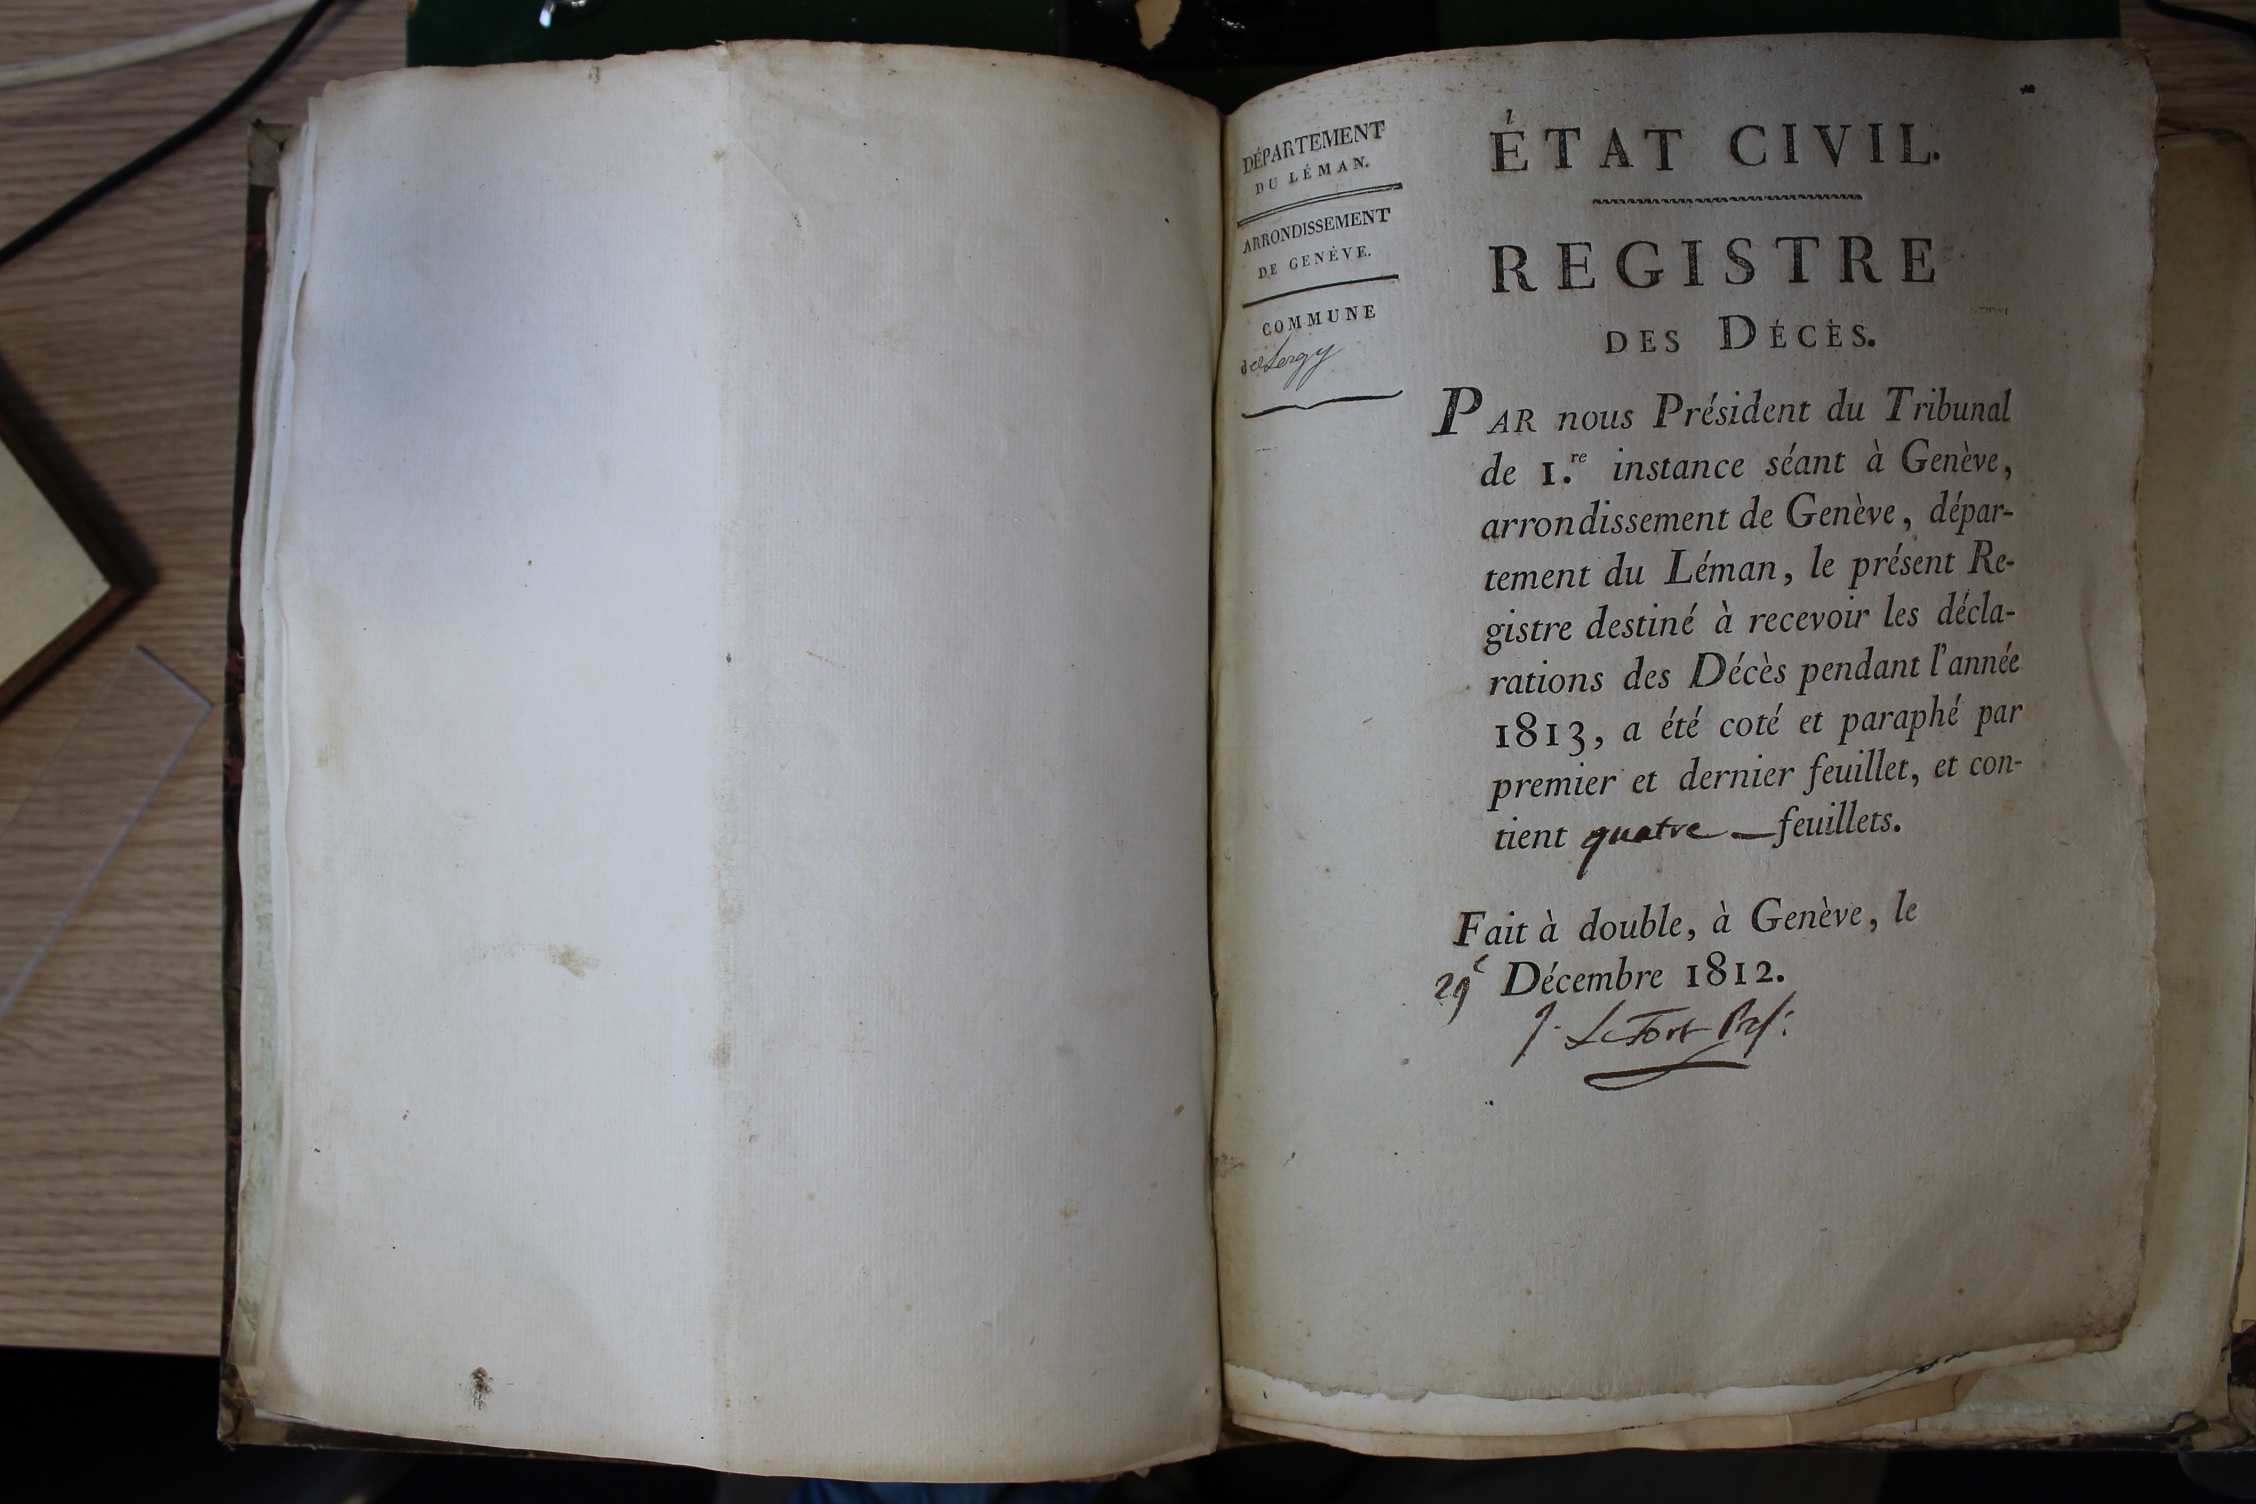 DÉPARTEMENT
DU LÉMAN.
ARRONDISSEMENT
DE GENÈVE.
COMMUNE
de Sergy
ÉTAT CIVIL.
REGISTRE
DES DÉCÈS.
PAR nous Président du Tribunal
de 1.re instance séant à Genève,
arrondissement de Genève, dépar-
tement du Léman, le présent Re-
gistre destiné à recevoir les décla-
rations des Décès pendant l'année
1813, a été coté et paraphé par
premier et dernier feuillet, et con-
tient quatre — feuillets.
Fait à double, à Genève, le
29e Décembre 1812.
J. LeFort